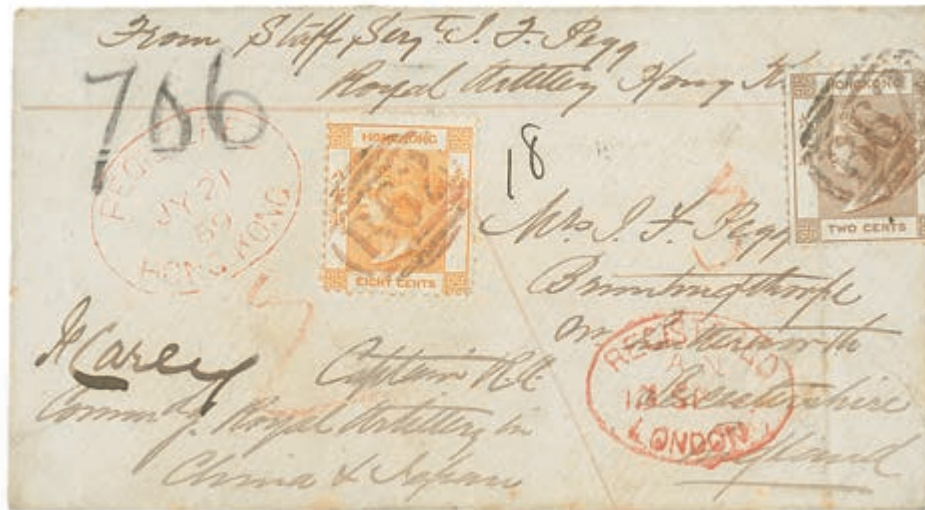 From Staff Serjt. J. F. Pegg
Royal Artillery Hong K
706
REGISTERED
JY 21
69
HONG KONG
HONG KONG
B62
EIGHT CENTS
18
HONG KONG
B62
TWO CENTS
Mrs J. F. Pegg
Bruntingthorpe
Lutterworth
Leicestershire
England
REGISTERED
LONDON
Carey
Captain R.A.
Commdg. Royal Artillery in
China & Japan